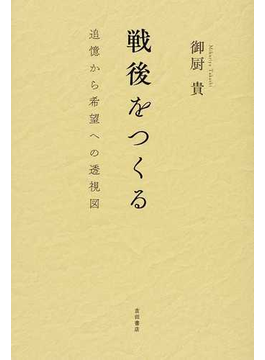 御厨 貴
Mikuriya Takashi
戦後をつくる
追憶から希望への透視図
吉田書店